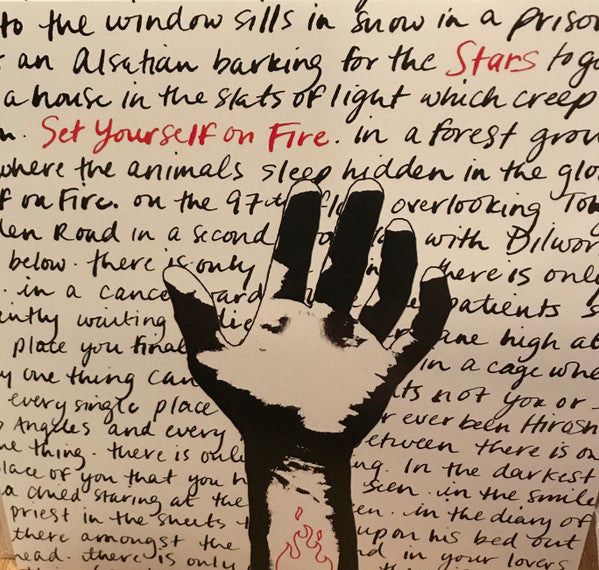 to the window sills in snow in a prison
an Alsatian barking for the Stars to go
a house in the slats of light which creep
Set Yourself on Fire. in a forest grow
where the animals sleep hidden in the glo
f on Fire. on the 97th flo overlooking Tow
den Road in a second with Dilwor
below. there is only there is only
in a cance ard patients s
ently waiting die ane high at
place you final in a cage whe
y one thing can ts not you or
every single place r ever been Hirosh
Angeles and every etween there is on
ne thing. there is only ng. In the darkest
place of you that you h seen. in the smile
a child staring at the en. in the diary of
priest in the sheets upon his bed out
there amongst the nd in your lovers
head. there is only